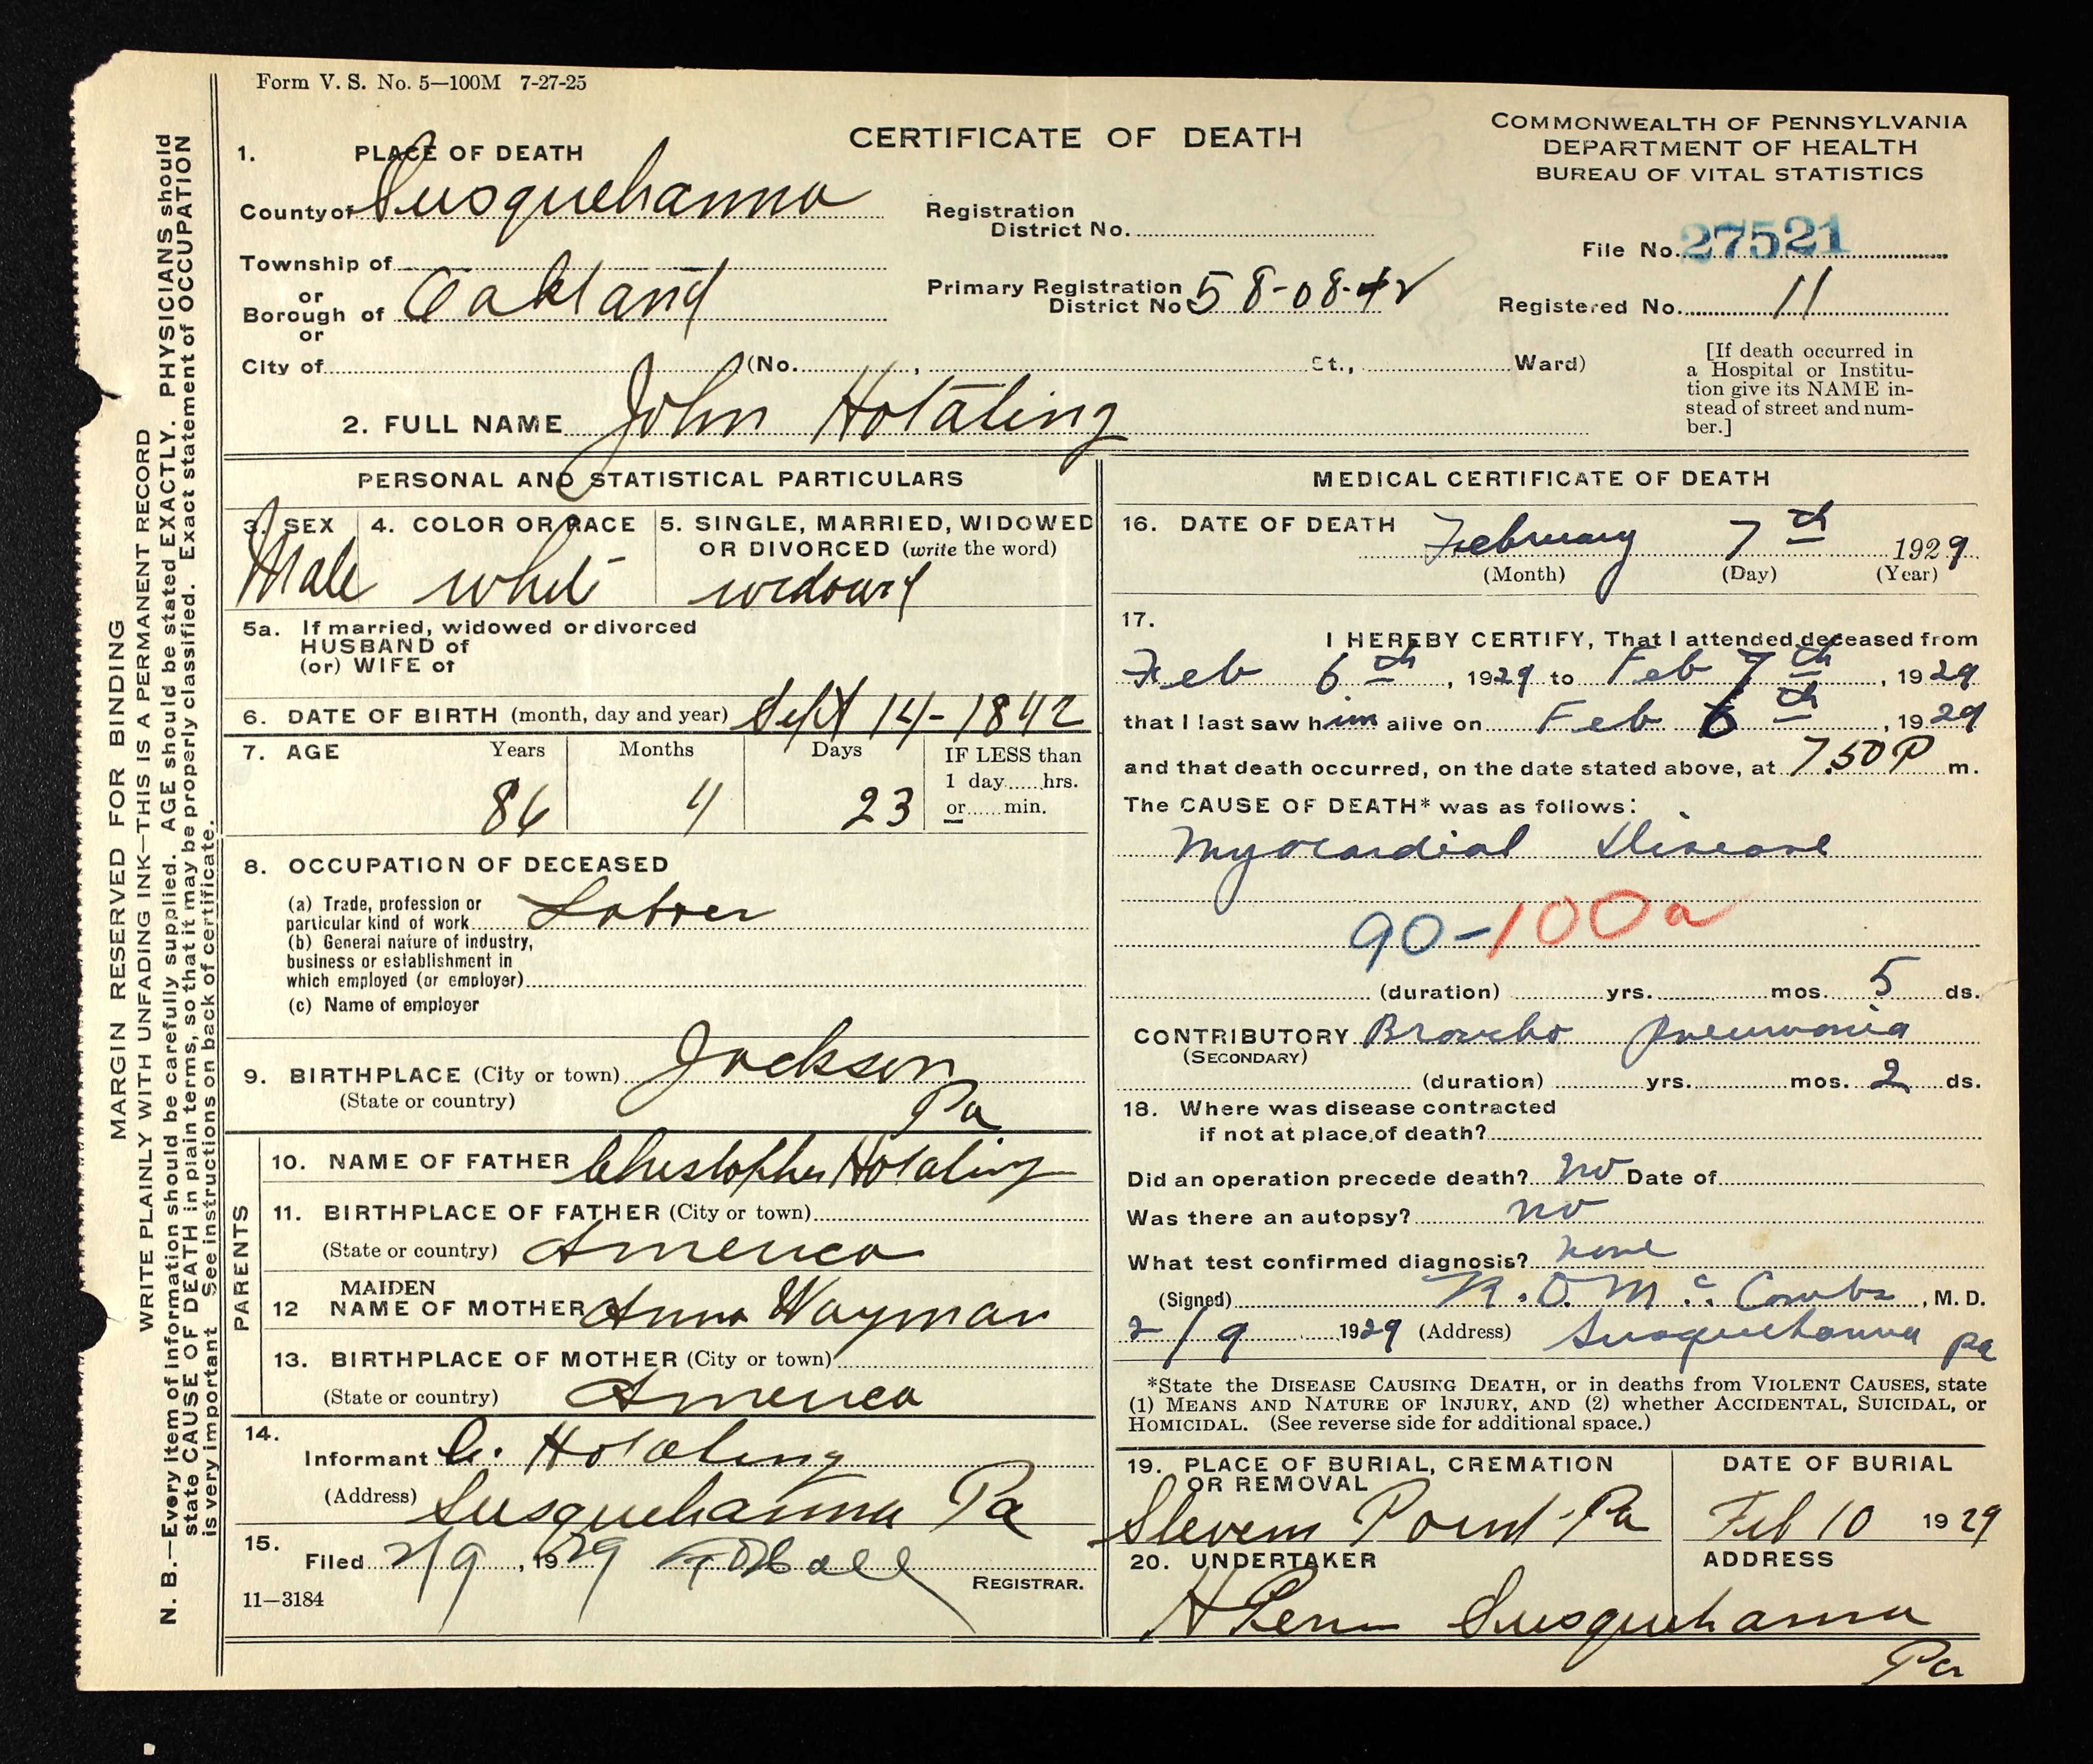 Form V. S. No. 5—100M 7-27-25
CERTIFICATE OF DEATH
COMMONWEALTH OF PENNSYLVANIA
DEPARTMENT OF HEALTH
BUREAU OF VITAL STATISTICS
1. PLACE OF DEATH
County of Susquehanna
Registration
District No.
File No. 27521
Township of
or
Borough of Oakland
or
Primary Registration
District No 58-08-42
Registered No. 11
City of (No. , St., Ward)
[If death occurred in
a Hospital or Institu-
tion give its NAME in-
stead of street and num-
ber.]
2. FULL NAME John Hotaling
PERSONAL AND STATISTICAL PARTICULARS
3. SEX
Male
4. COLOR OR RACE
white
5. SINGLE, MARRIED, WIDOWED
OR DIVORCED (write the word)
widowed
5a. If married, widowed or divorced
HUSBAND of
(or) WIFE of
6. DATE OF BIRTH (month, day and year) Sept 14-1842
7. AGE Years Months Days IF LESS than
1 day......hrs.
or......min.
86 4 23
8. OCCUPATION OF DECEASED
(a) Trade, profession or
particular kind of work Laborer
(b) General nature of industry,
business or establishment in
which employed (or employer)
(c) Name of employer
9. BIRTHPLACE (City or town) Jackson
(State or country) Pa
PARENTS
10. NAME OF FATHER Christopher Hotaling
11. BIRTHPLACE OF FATHER (City or town)
(State or country) America
12 MAIDEN
NAME OF MOTHER Anna Wayman
13. BIRTHPLACE OF MOTHER (City or town)
(State or country) America
14.
Informant C. Hotaling
(Address) Susquehanna Pa
15.
Filed 2/9, 1929
REGISTRAR.
11—3184
MEDICAL CERTIFICATE OF DEATH
16. DATE OF DEATH February 7th 1929
(Month) (Day) (Year)
17.
I HEREBY CERTIFY, That I attended deceased from
Feb 6th, 1929 to Feb 7th, 1929
that I last saw him alive on Feb 6th, 1929
and that death occurred, on the date stated above, at 7.50 P m.
The CAUSE OF DEATH* was as follows:
Myocardial Disease
90-100a
(duration) yrs. mos. 5 ds.
CONTRIBUTORY Broncho pneumonia
(SECONDARY)
(duration) yrs. mos. 2 ds.
18. Where was disease contracted
if not at place of death?
Did an operation precede death? no Date of
Was there an autopsy? no
What test confirmed diagnosis? none
(Signed) Mc. Combs, M. D.
2/9 1929 (Address) Susquehanna Pa
*State the DISEASE CAUSING DEATH, or in deaths from VIOLENT CAUSES, state
(1) MEANS AND NATURE OF INJURY, AND (2) whether ACCIDENTAL, SUICIDAL, or
HOMICIDAL. (See reverse side for additional space.)
19. PLACE OF BURIAL, CREMATION
OR REMOVAL
Stevens Point-Pa
DATE OF BURIAL
Feb 10 1929
20. UNDERTAKER
ADDRESS
Susquehanna
Pa
MARGIN RESERVED FOR BINDING
WRITE PLAINLY WITH UNFADING INK—THIS IS A PERMANENT RECORD
N. B.—Every item of information should be carefully supplied. AGE should be stated EXACTLY. PHYSICIANS should
state CAUSE OF DEATH in plain terms, so that it may be properly classified. Exact statement of OCCUPATION
is very important See instructions on back of certificate.